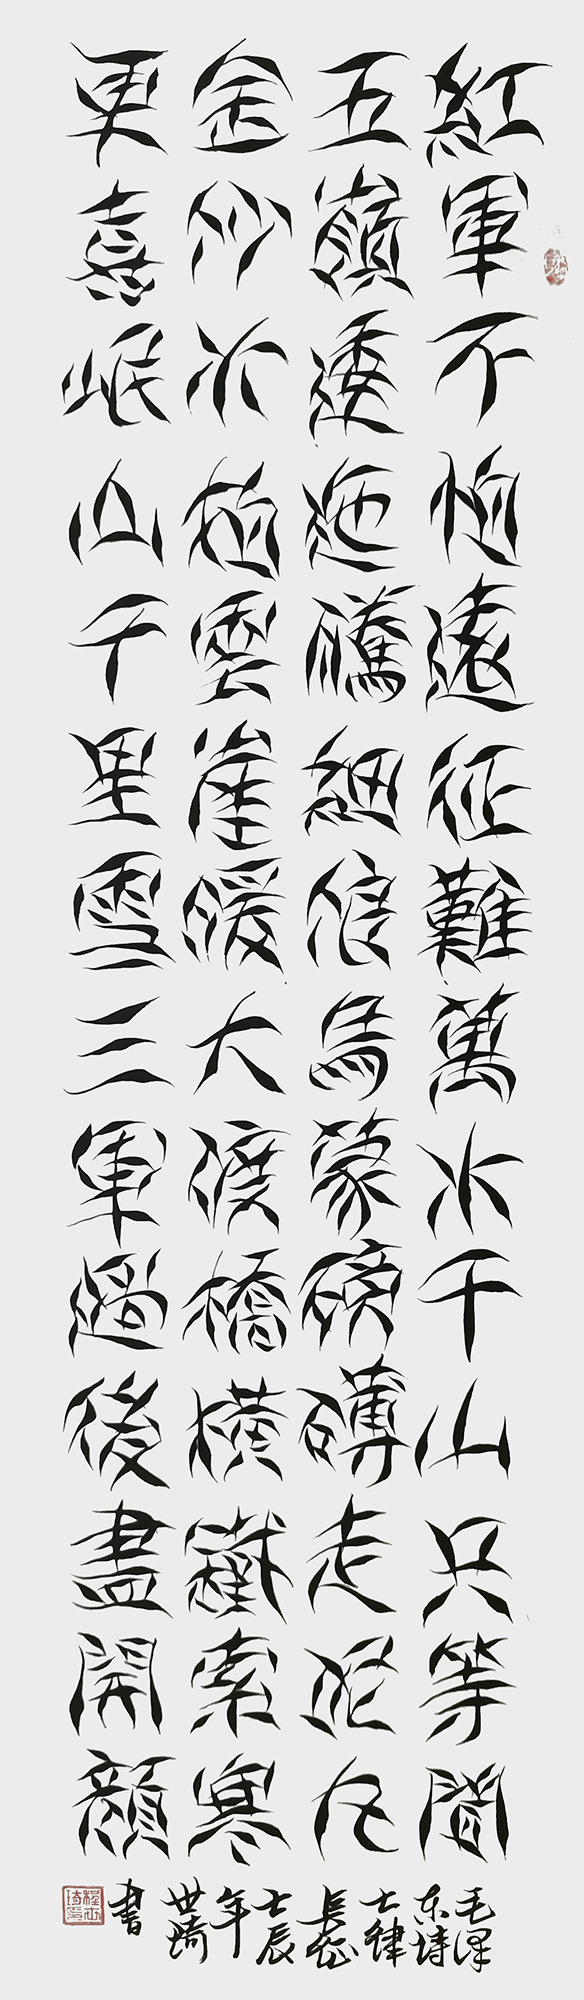 紅軍不怕遠征難萬水千山只等間
五嶺逶迤騰細浪烏蒙磅礴走泥丸
金沙水拍雲崖暖大渡橋橫鐵索寒
更喜岷山千里雪三軍過後盡開顏
毛澤
东詩
七律
長征
壬辰
年
世琦
書